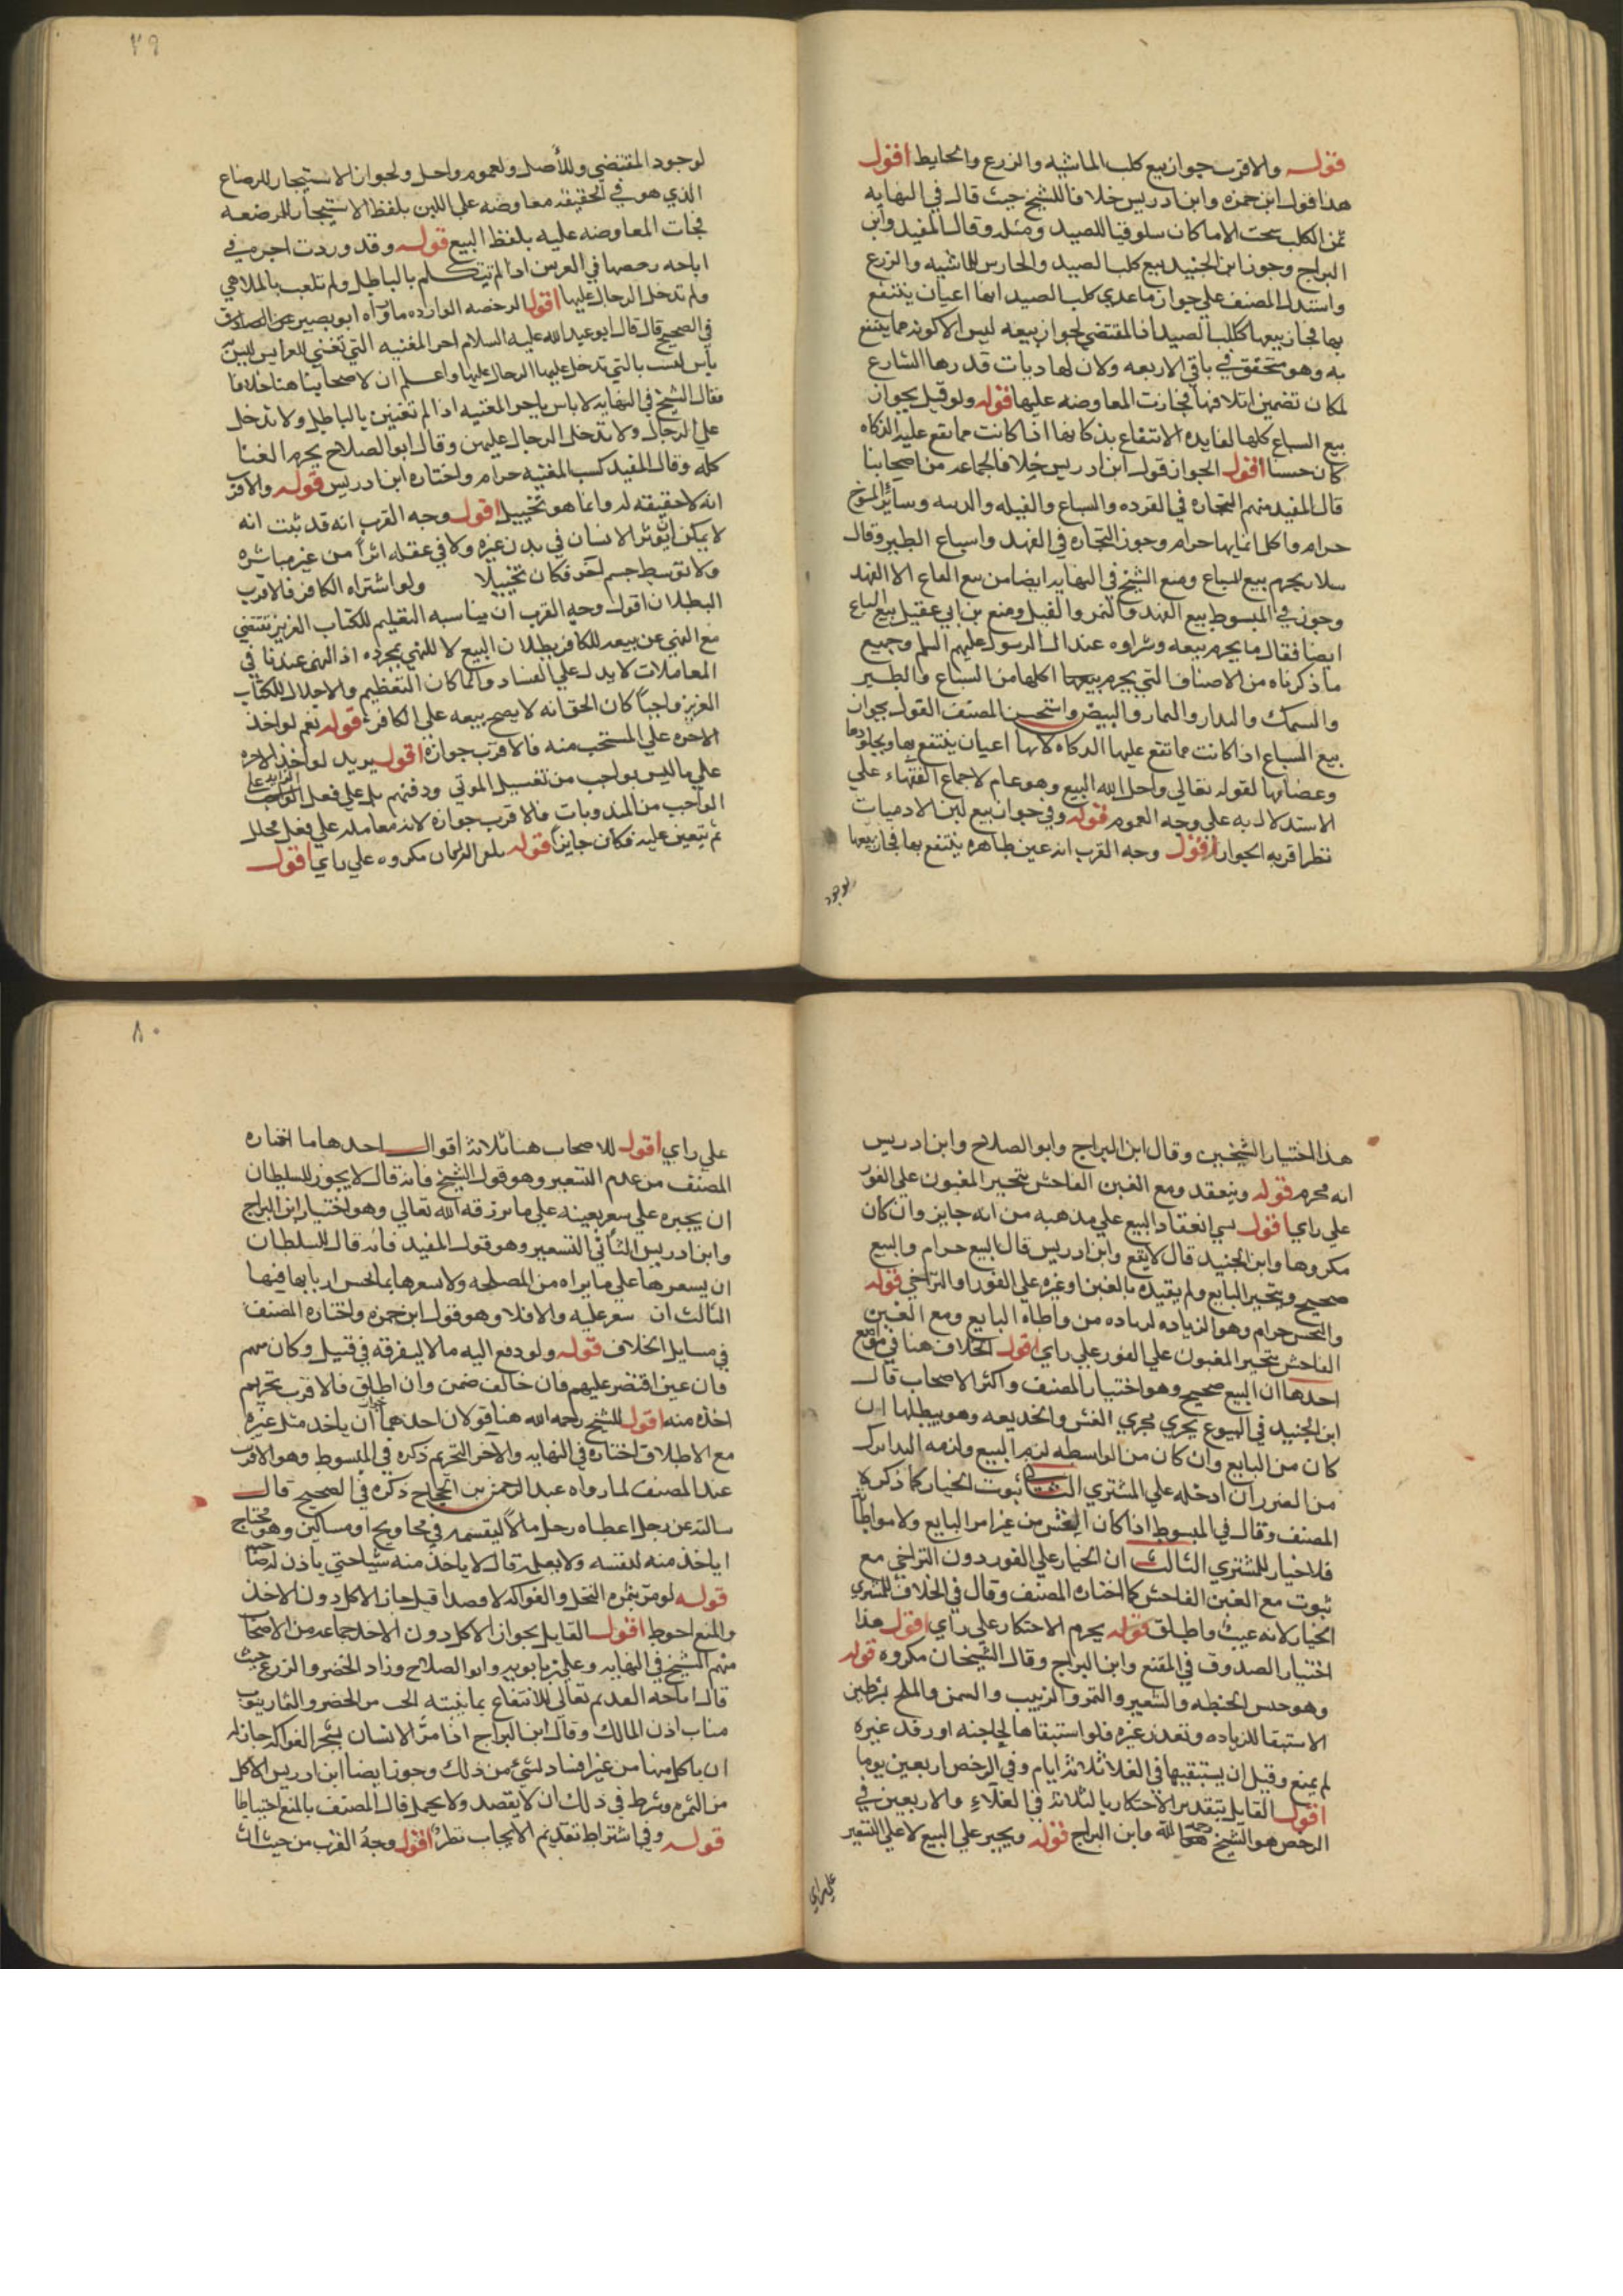 قوله والاقرب جواز بيع كلب الماشيه والزرع والحايط اقول
هذا قول ابن حمزه وابن ادريس خلافا للشيخ حيث قال في النهايه
ثمن الكلب سحت الا ما كان سلوقيا للصيد ومثله قال المفيد وابن
البراج وجوز ابن الجنيد بيع كلب الصيد والحارس للماشيه والزرع
واستدل المصنف علي جواز ما عدي كلب الصيد انها اعيان ينتفع
بها فجاز بيعها ككلب الصيد اذ المقتضي لجواز بيعه ليس الا كونه مما ينتفع
به وهو متحقق في باقي الاربعه ولان لها ديات قدرها الشارع
لمكان تضمين اتلافها فجازت المعاوضه عليها قوله ولو قيل بجواز
بيع السباع كلها لفايده الانتفاع بذكاتها اذا كانت مما تقع عليه الذكاه
كان حسنا اقول الجواز قول ابن ادريس خلافا لجماعه من اصحابنا
قال المفيد منهم التجاره في القرده والسباع والفيله والدببه وساير المسوخ
حرام واكل اثمانها حرام وجوز التجاره في الفهد واسباع الطير وقال
سلار يحرم بيع السباع ومنع الشيخ في النهايه ايضا من بيع السباع الا الفهد
وجوز في المبسوط بيع الفهد والنمر والفيل ومنع بن ابي عقيل بيع السباع
ايضا فقال ما يحرم بيعه وشراوه عند ال الرسول عليهم السلم وجميع
ما ذكرناه من الاصناف التي يحرم بيعها اكلها من السباع والطير
والسمك والثمار والبيض واستحسن المصنف القول بجواز
بيع السباع اذا كانت مما تقع عليها الذكاه لانها اعيان ينتفع بها وبجلودها
وعظامها لقوله تعالي واحل الله البيع وهو عام لاجماع الفقهاء علي
الاستدلال به علي وجه العموم قوله وفي جواز بيع لبن الادميات
نظر اقربه الجواز اقول وجه القرب انه عين طاهره ينتفع بها فجاز بيعها
لوجود
٧٩
لوجود المقتضي وللأصل ولعموم واحل ولجواز الاستيجار للرضاع
الذي هو في الحقيقه معاوضه علي اللبن بلفظ الاستيجار للرضعه
فجات المعاوضه عليه بلفظ البيع قوله وقد وردت اجره في
اباحه رخصها في العرس اذا لم تتكلم بالباطل ولم تلعب بالملاهي
ولم تدخل الرجال عليها اقول الرخصه الوارده ما رواه ابو بصير عن الصادق
في الصحيح قال قال ابو عبد الله عليه السلام اجر المغنيه التي تغني للعرايس ليس به
باس ليست بالتي تدخل عليها الرجال عليها واعلم ان لاصحابنا هنا خلافا
فقال الشيخ في النهايه لا باس باجر المغنيه اذا لم تغنين بالباطل ولا تدخل
علي الرجال ولا تدخل الرجال عليهن وقال ابو الصلاح يحرم الغنا
كله وقال المفيد كسب المغنيه حرام واختاره ابن ادريس قوله والاقرب
انه لا حقيقه له وانما هو تخييل اقول وجه القرب انه قد ثبت انه
لا يمكن ان يوثر الانسان في بدن غيره ولا في عقله اثراً من غير مباشره
ولا توسط جسم اخر فكان تخييلا ولو اشتراه الكافر فالاقرب
البطلان اقول وجه القرب ان مناسبه التعظيم للكتاب العزيز تقتضي
مع النهي عن بيعه للكافر بطلان البيع لا للنهي بمجرده اذ النهي عندنا في
المعاملات لا يدل علي الفساد ولما كان التعظيم والاجلال للكتاب
العزيز واجباً كان الحق انه لا يصح بيعه علي الكافر قوله نعم لو اخذ
الاجره علي المستحب منه فالاقرب جوازه اقول يريد لو اخذ الاجره
علي ما ليس بواجب من تغسيل الموتي ودفنهم بل علي فعل الزايد علي
الواجب من المندوبات فالاقرب جوازه لانه معامله علي فعل محلل
لم يتعين عليه فكان جايزاً قوله تلقي الركبان مكروه علي راي اقول
هذا اختيار الشيخين وقال ابن البراج وابو الصلاح وابن ادريس
انه محرم قوله وينعقد ومع الغبن الفاحش يتخير المغبون علي الفور
علي راي اقول اما انعقاد البيع علي مذهبه من انه جايز وان كان
مكروها وابن الجنيد قال لا يقع وابن ادريس قال البيع حرام والبيع
صحيح ويتخير البايع ولم يقيده بالغبن او غيره علي الفور او التراخي قوله
والنجش حرام وهو الزياده لزياده من واطاه البايع ومع الغبن
الفاحش يتخير المغبون علي الفور علي راي اقول الخلاف هنا في مواضع
احدها ان البيع صحيح وهو اختيار المصنف واكثر الاصحاب قال
ابن الجنيد في البيوع يجري مجري الغش والخديعه وهو يبطلها ان
كان من البايع وان كان من الواسطه لزم البيع ولزمه الدرك
من الضرر ان ادخله علي المشتري الثاني ثبوت الخيار كما ذكره
المصنف وقال في المبسوط اذا كان النجش من غير امر البايع ولا مواطاته
فلا خيار للمشتري الثالث ان الخيار علي الفور دون التراخي مع
ثبوت مع الغبن الفاحش كما اختاره المصنف وقال في الخلاف للمشتري
الخيار لانه عيب واطلق قوله يحرم الاحتكار علي راي اقول هذا
اختيار الصدوق في المقنع وابن البراج وقال الشيخان مكروه قوله
وهو حبس الحنطه والشعير والتمر والزبيب والسمن والملح بشرطين
الاستبقا للزياده وتعذر غيره فلو استبقاها لحاجته او وجد غيره
لم يمنع وقيل ان يستبقيها في الغلا ثلاثه ايام وفي الرخص اربعين يوما
اقول القايل بتقدير الاحتكار بالثلاثه في الغلاء والاربعين في
الرخص هو الشيخ رحمه الله وابن البراج قوله ويجبر علي البيع لا علي التسعير
علي راي
٨٠
علي راي اقول للاصحاب هنا ثلاثه اقوال احدها ما اختاره
المصنف من عدم التسعير وهو قول الشيخ فانه قال لا يجوز للسلطان
ان يجبره علي سعر بعينه علي ما يرزقه الله تعالي وهو اختيار ابن البراج
وابن ادريس الثاني التسعير وهو قول المفيد فانه قال للسلطان
ان يسعرها علي ما يراه من المصلحه ولا يسعرها بما يخسر اربابها فيها
الثالث ان سعر عليه والا فلا وهو قول ابن حمزه واختاره المصنف
في مسايل الخلاف قوله ولو دفع اليه مالا ليفرقه في قبيل وكان منهم
فان عين اقتصر عليهم فان خالف ضمن وان اطلق فالاقرب تحريم
اخذه منه اقول للشيخ رحمه الله هنا قولان احدهما جواز ان ياخذ مثل غيره
مع الاطلاق اختاره في النهايه والآخر التحريم ذكره في المبسوط وهو الاقرب
عند المصنف لما رواه عبد الرحمن بن الحجاج ذكره في الصحيح قال
سالته عن رجل اعطاه رجل مالاً ليقسمه في محاويج او مساكين وهو محتاج
اياخذ منه لنفسه ولا يعلمه قال لا ياخذ منه شيا حتي ياذن له صاحبه
قوله لو مر بثمره النخل والفواكه لا قصدا قيل جاز الاكل دون الاخذ
والمنع احوط اقول القايل بجواز الاكل دون الاخذ جماعه من الاصحاب
منهم الشيخ في النهايه وعلي بن بابويه وابو الصلاح وزاد الخضر والزرع حيث
قال اباحه القديم تعالي للانتفاع بما ينبته الحب من الخضر والثمار ينوب
مناب اذن المالك وقال ابن البراج اذا مرّ الانسان بشجر الفواكه جاز له
ان ياكل منها من غير افساد لشيء من ذلك وجوز ايضا ابن ادريس الاكل
من الثمره وشرط في ذلك ان لا يقصد ولا يحمل قال المصنف بالمنع احتياطا
قوله وفي اشتراط تقديم الايجاب نظر اقول وجه القرب من حيث ان